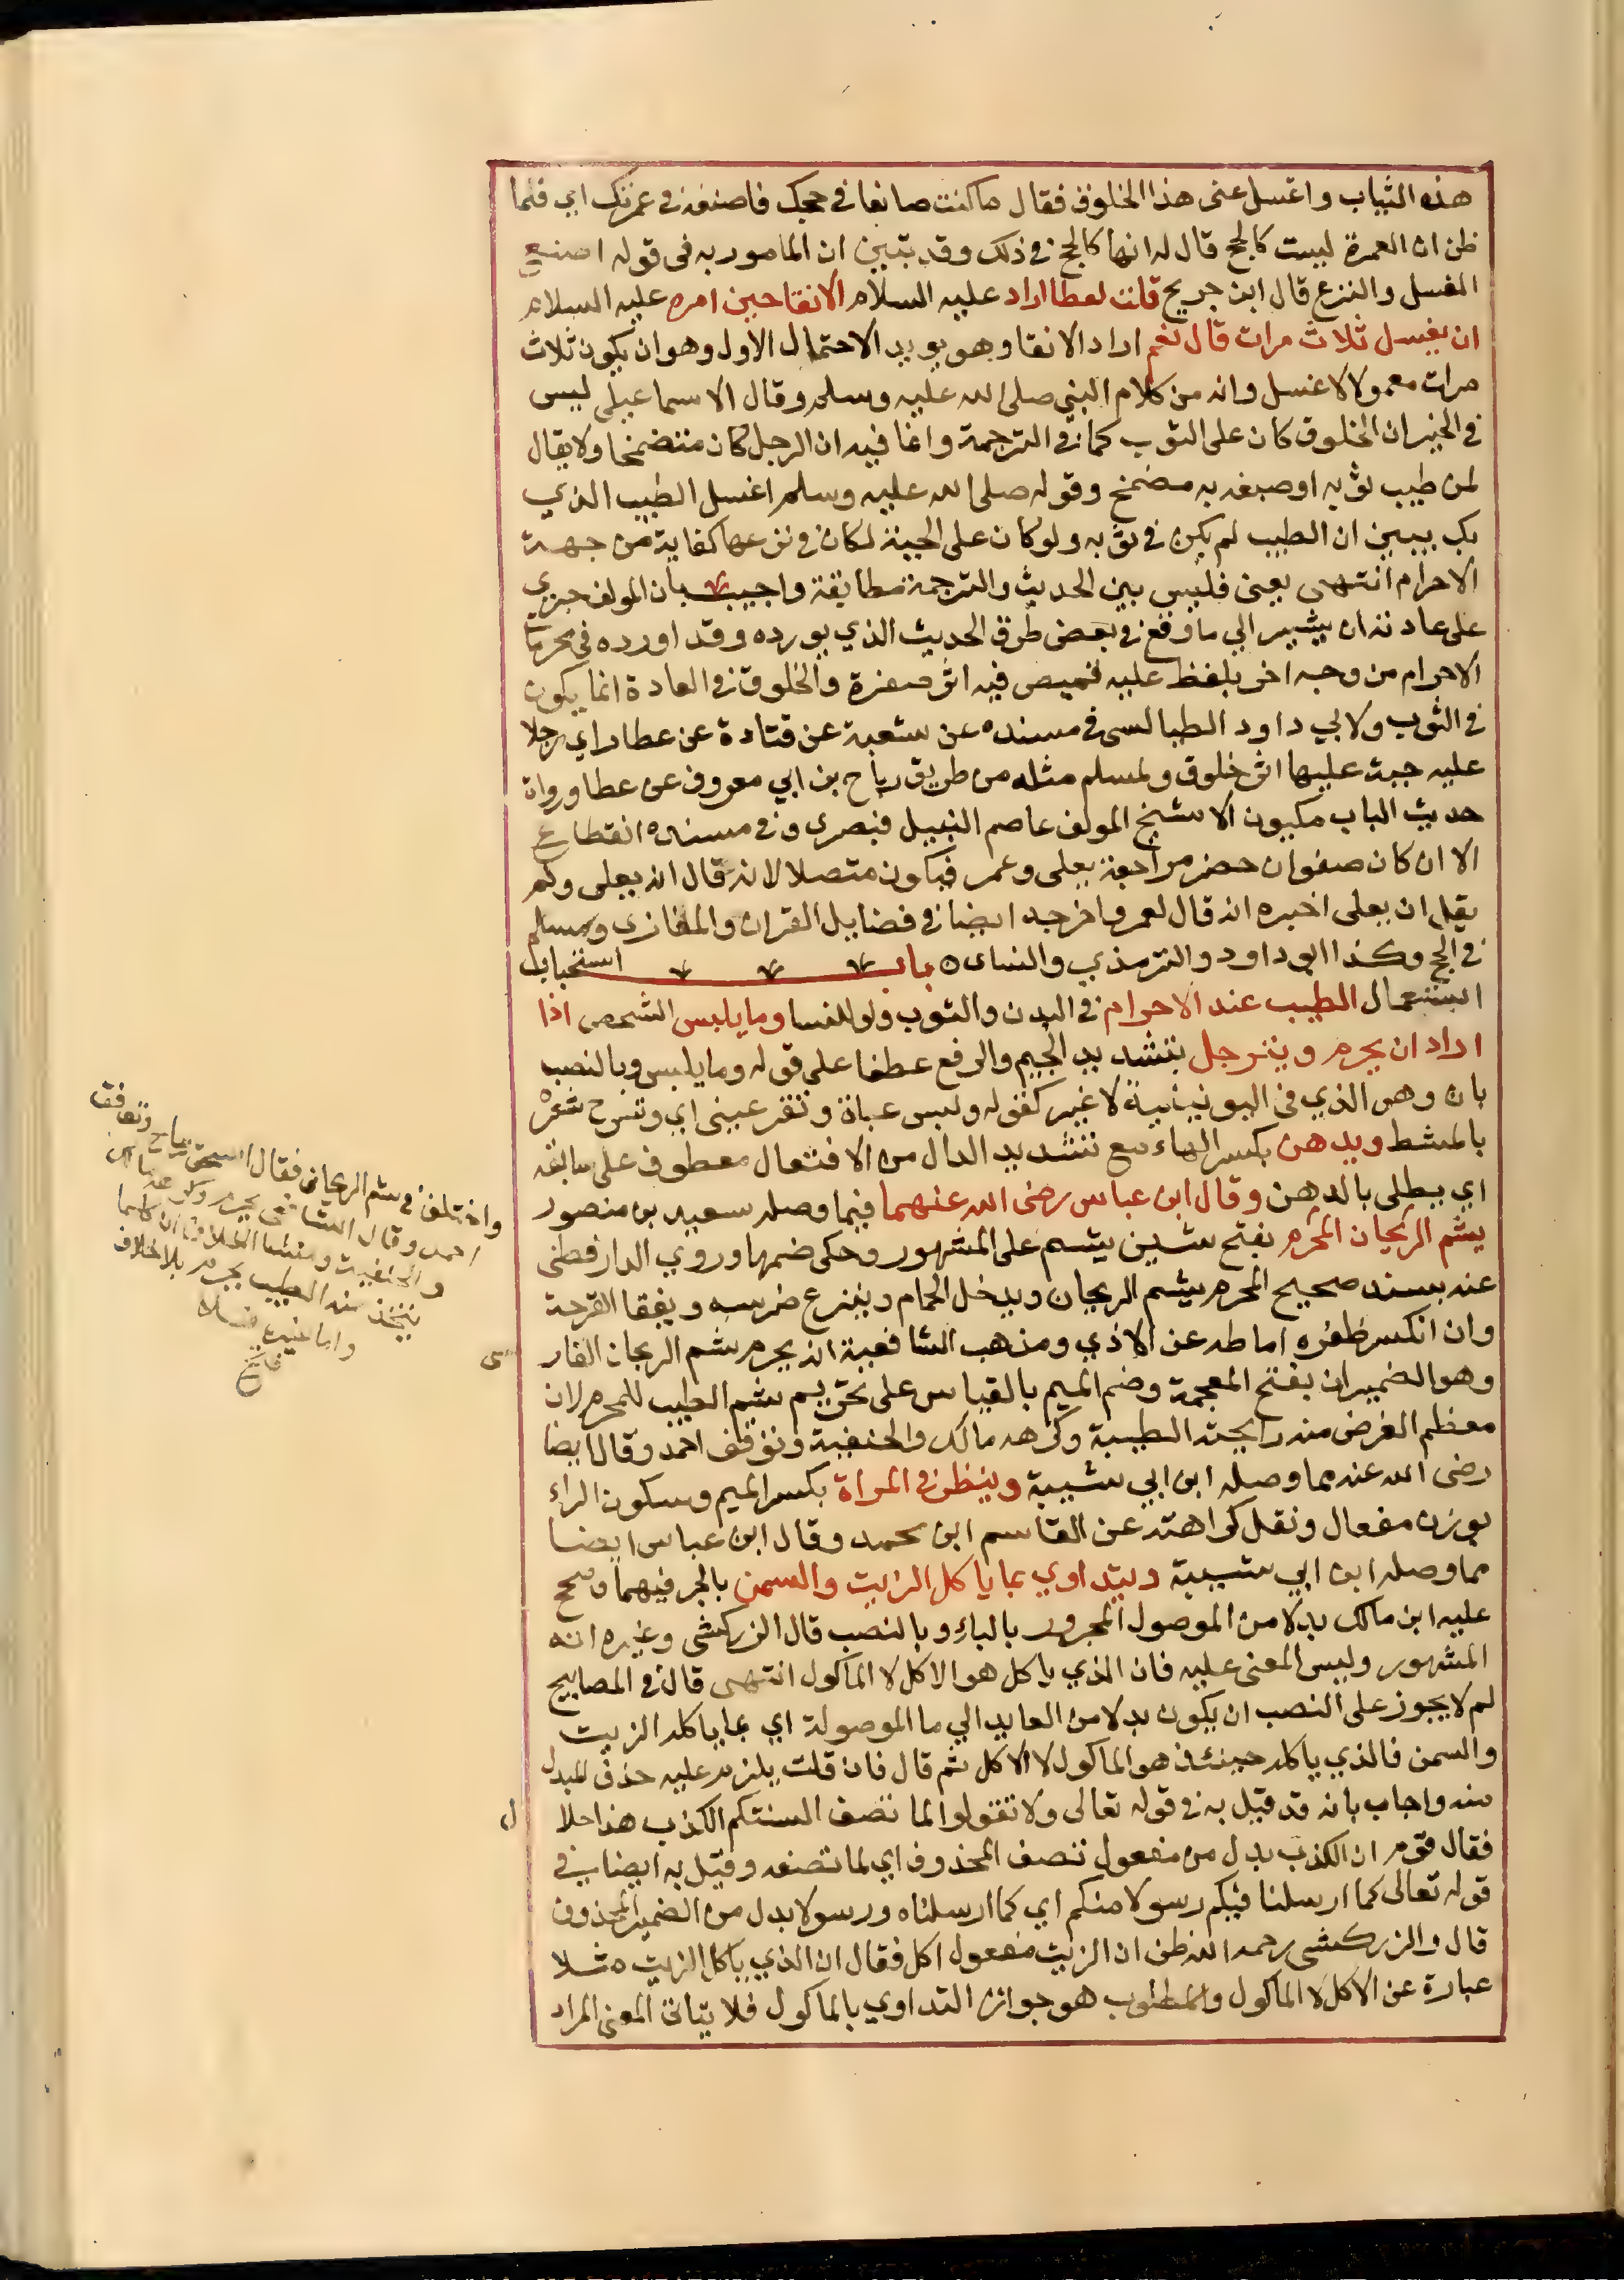 هذه الثياب واغسل عنى هذا الخلوق فقال ما كنت صانعا في حجك فاصنعه في عمرتك اي فلما
ظن ان العمرة ليست كالحج قال له انها كالحج في ذلك وقد تبين ان المامور به فى قوله اصنع
الغسل والنزع قال ابن جريج قلت لعطا اراد عليه السلام الانقا حين امره عليه السلام
ان يغسل ثلاث مرات قال نعم اراد الانقا وهو يويد الاحتمال الاول وهو ان يكون ثلاث
مرات معمولا لاغسل وانه من كلام النبي صلى الله عليه وسلم وقال الاسماعيلى ليس
في الخبر ان الخلوق كان على الثوب كما في الترجمة وانما فيه ان الرجل كان متضمخا ولا يقال
لمن طيب ثوبه او صبغه به متضمخ وقوله صلى الله عليه وسلم اغسل الطيب الذي
بك يبين ان الطيب لم يكن في ثوبه ولو كان على الجبة لكان في نزعها كفاية من جهة
الاحرام انتهى يعنى فليس بين الحديث والترجمة مطابقة واجيب بان المولف جري
على عادته ان يشير الي ما وقع في بعض طرق الحديث الذي يورده وقد اورده في محرمات
الاحرام من وجه اخر بلفظ عليه قميص فيه اثر صفرة والخلوق في العادة انما يكون
في الثوب ولابي داود الطيالسى في مسنده عن شعبة عن قتادة عن عطا راي رجلا
عليه جبة عليها اثر خلوق ولمسلم مثله من طريق رباح بن ابي معروف عن عطا ورواة
حديث الباب مكيون الا شيخ المولف عاصم النبيل فبصرى وفي مسنده انقطاع
الا ان كان صفوان حضر مراجعة يعلى وعمر فيكون متصلا لانه قال ان يعلى ولم
يقل ان يعلى اخبره انه قال لعمر واخرجه ايضا في فضايل القران والمغازى ومسلم
في الحج وكذا ابو داود والترمذي والنساى ه باب استحباب
استعمال الطيب عند الاحرام في البدن والثوب ولو للنسا وما يلبس الشخص اذا
اراد ان يحرم ويترجل بتشديد الجيم والرفع عطفا على قوله وما يلبس وبالنصب
بان وهو الذي في اليونينية لا غير كقوله ولبس عباة وتقر عيني اي وتسرح شعره
بالمشط ويدهن بكسر الهاء مع تشديد الدال من الافتعال معطوف على سابقه
اي يطلى بالدهن وقال ابن عباس رضى الله عنهما فيما وصله سعيد بن منصور
يشم الريحان المحرم بفتح شين يشم على المشهور وحكى ضمها وروي الدارقطنى
عنه بسند صحيح المحرم يشم الريحان ويدخل الحمام وينزع ضرسه ويفقا القرحة
وان انكسر ظفره اماط عنه الاذي ومذهب الشافعية انه يحرم شم الريحان الفارسى
وهو الضميران بفتح المعجمة وضم الميم بالقياس على تحريم شم الطيب للمحرم لان
معظم الغرض منه رايحته الطيبة وكرهه مالك والحنفية وتوقف احمد وقال ايضا
رضى الله عنه مما وصله ابن ابي شيبة وينظر في المراة بكسر الميم وسكون الراء
بوزن مفعال ونقل كراهته عن القاسم ابن محمد وقال ابن عباس ايضا
مما وصله ابن ابي شيبة ويتداوي بما ياكل الزيت والسمن بالجر فيهما وصحح
عليه ابن مالك بدلا من الموصول المجرور بالباء وبالنصب قال الزركشى وغيره انه
المشهور وليس المعنى عليه فان الذي ياكل هو الاكل لا الماكول انتهى قال في المصابيح
لم لا يجوز على النصب ان يكون بدلا من العايد الي ما الموصولة اي بما ياكله الزيت
والسمن فالذي ياكله حينئذ هو الماكول لا الاكل ثم قال فان قلت يلزم عليه حذف المبدل
منه واجاب بانه قد قيل به في قوله تعالى ولا تقولوا لما تصف السنتكم الكذب هذا حلال
فقال قوم ان الكذب بدل من مفعول تصف المحذوف اي لما تصفه وقيل به ايضا في
قوله تعالى كما ارسلنا فيكم رسولا منكم اي كما ارسلناه ورسولا بدل من الضمير المحذوف
قال والزركشى رحمه الله ظن ان الزيت مفعول اكل فقال ان الذي ياكل الزيت مثلا
عبارة عن الاكل لا الماكول والمطلوب هو جواز التداوي بالماكول فلا يتاتى المعنى المراد
واختلف في شم الريحان فقال اسحق يباح وتوقف
احمد وقال الشافعى يحرم وكرهه مالك
والحنفية ومنشا الخلاف ان كلما
يتخذ منه الطيب يحرم بلا خلاف
واما غيره فلا
فتح